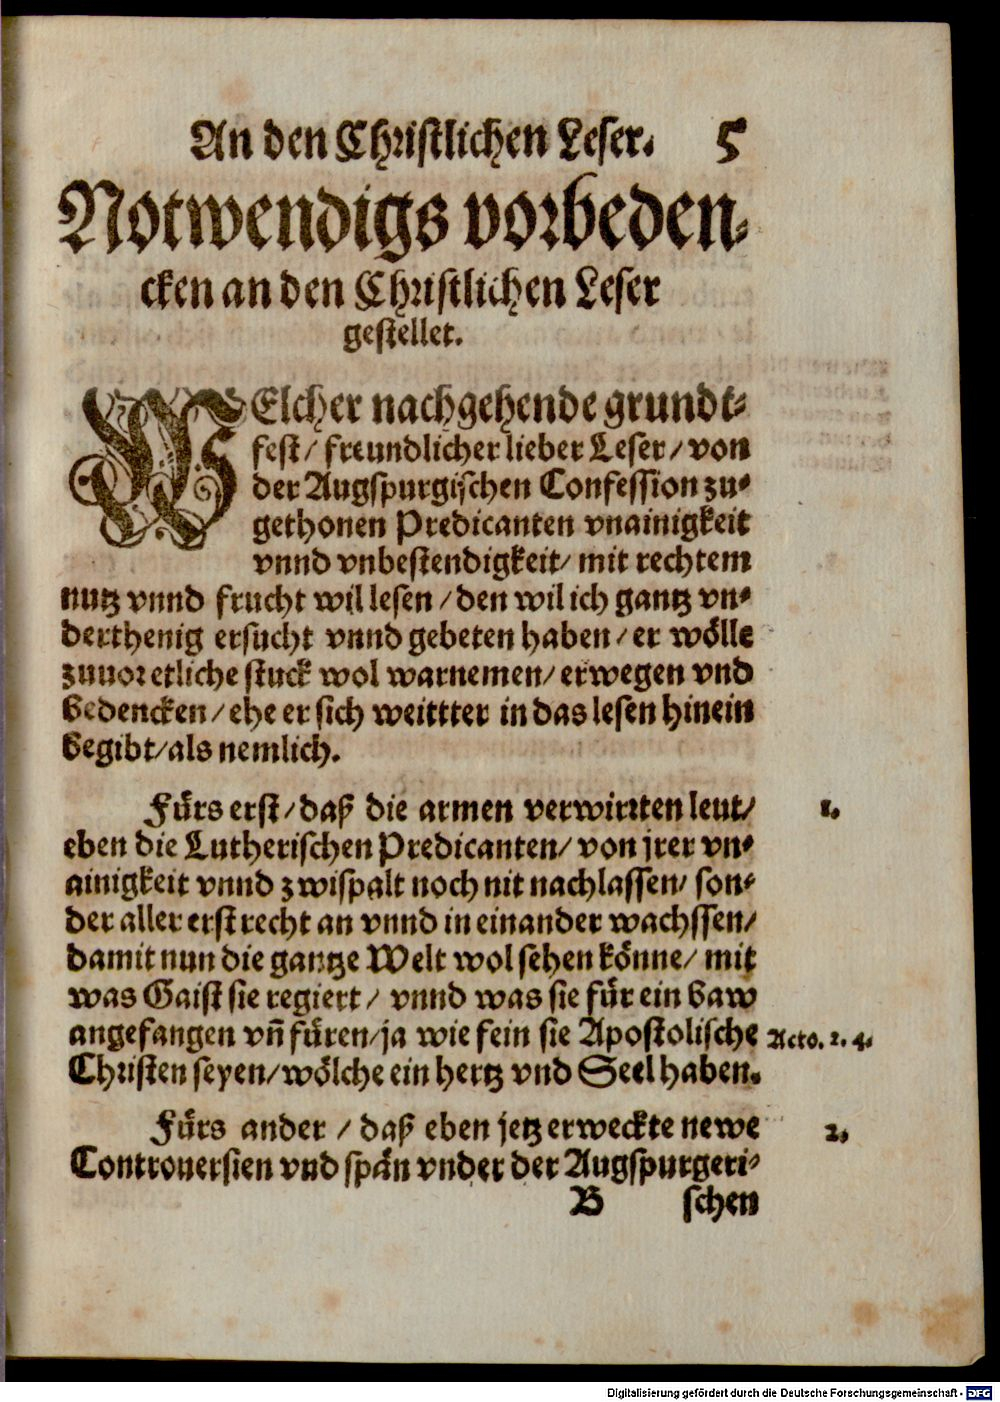 An den Christlichen Leser. 5
Notwendigs vorbeden-
cken an den Christlichen Leser
gestellet.
WElcher nachgehende grundt-
fest / freundlicher lieber Leser / von
der Augspurgischen Confession zu-
gethonen Predicanten vnainigkeit
vnnd vnbestendigkeit / mit rechtem
nutz vnnd frucht wil lesen / den wil ich gantz vn-
derthenig ersucht vnnd gebeten haben / er wölle
zuuor etliche stuck wol warnemen / erwegen vnd
bedencken / ehe er sich weittter in das lesen hinein
begibt / als nemlich.
Fürs erst / daß die armen verwirrten leut / 1.
eben die Lutherischen Predicanten / von jrer vn-
ainigkeit vnnd zwispalt noch nit nachlassen / son-
der aller erst recht an vnnd in einander wachssen /
damit nun die gantze Welt wol sehen könne / mit
was Gaist sie regiert / vnnd was sie für ein baw
angefangen vñ füren / ja wie fein sie Apostolische Acto. 2. 4.
Christen seyen / wölche ein hertz vnd Seel haben.
Fürs ander / daß eben jetz erweckte newe 2.
Controuersien vnd spän vnder der Augspurgeri-
B schen
Digitalisierung gefördert durch die Deutsche Forschungsgemeinschaft - DFG